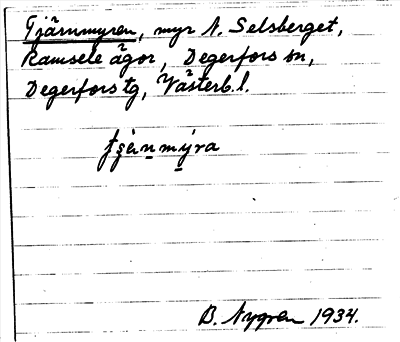 Tjärnmyren, myr N. Selsberget,
Ramsele ägor, Degerfors sn,
Degerfors tg, Västerb. l.
B. Nygren 1934.